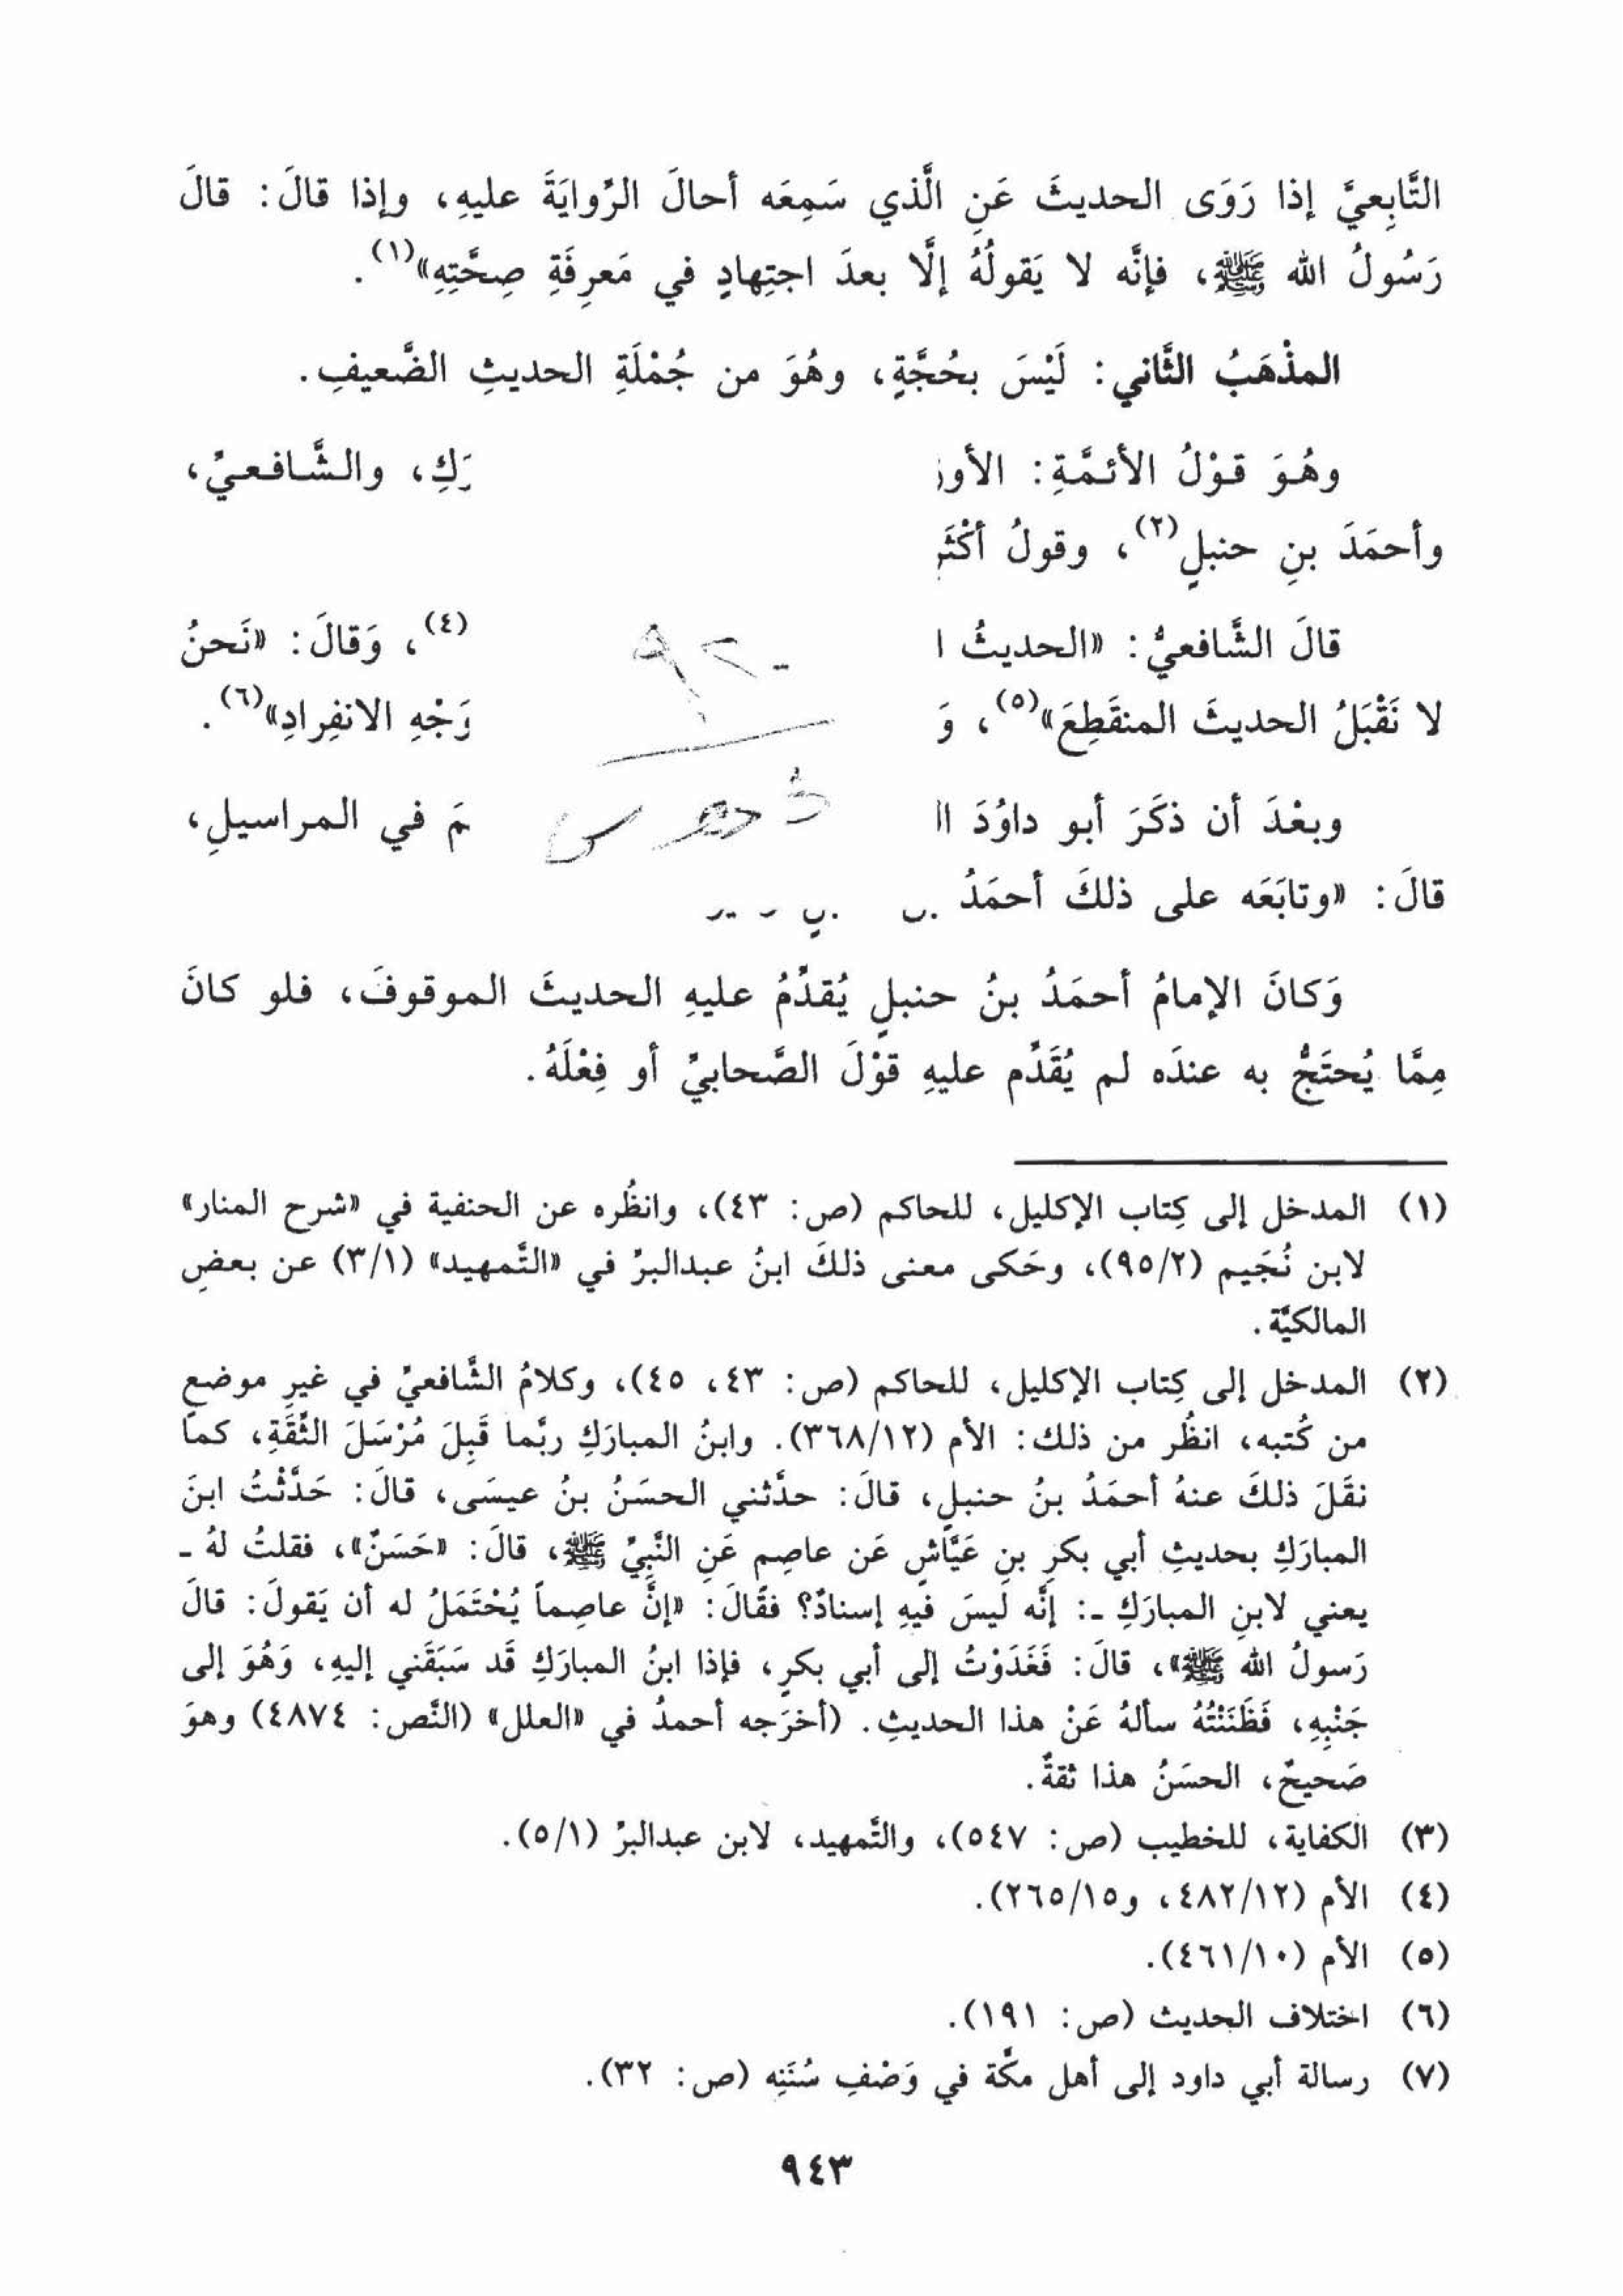 التَّابِعيَّ إذا رَوَى الحديثَ عَنِ الَّذي سَمِعَه أحالَ الرِّوايَةَ عليهِ، وإذا قالَ: قالَ
رَسُولُ الله ﷺ، فإنَّه لا يَقولُهُ إلَّا بعدَ اجتِهادٍ في مَعرِفَةِ صِحَّتِهِ»(١).
المذْهَبُ الثَّاني: لَيْسَ بحُجَّةٍ، وهُوَ من جُمْلَةِ الحديثِ الضَّعيفِ.
وهُوَ قوْلُ الأئمَّةِ: والشَّافعيِّ،
وأحمَدَ بنِ حنبلٍ(٢)، وقولُ
قالَ الشَّافعيُّ: «الحديثُ (٤)، وَقالَ: «نَحنُ
لا نَقْبَلُ الحديثَ المنقَطِعَ»(٥)، وَ وَجْهِ الانفِرادِ»(٦).
وبعْدَ أن ذكَرَ أبو داوُدَ في المراسيلِ،
قالَ: «وتابَعَه على ذلكَ أحمَدُ
وَكانَ الإمامُ أحمَدُ بنُ حنبلٍ يُقدِّمُ عليهِ الحديثَ الموقوفَ، فلو كانَ
مِمَّا يُحتَجُّ به عندَه لم يُقَدِّم عليهِ قوْلَ الصَّحابيِّ أو فِعْلَهُ.
(١) المدخل إلى كِتاب الإكليل، للحاكم (ص: ٤٣)، وانظُره عن الحنفية في «شرح المنار»
لابن نُجَيم (٩٥/٢)، وحَكى معنى ذلكَ ابنُ عبدالبرِّ في «التَّمهيد» (٣/١) عن بعضِ
المالكيَّة.
(٢) المدخل إلى كِتاب الإكليل، للحاكم (ص: ٤٣، ٤٥)، وكلامُ الشَّافعيِّ في غيرِ موضعٍ
من كُتبه، انظُر من ذلك: الأم (٣٦٨/١٢). وابنُ المبارَكِ ربَّما قَبِلَ مُرْسَلَ الثِّقَةِ، كما
نقَلَ ذلكَ عنهُ أحمَدُ بنُ حنبلٍ، قالَ: حدَّثني الحسَنُ بنُ عيسَى، قالَ: حَدَّثْتُ ابنَ
المبارَكِ بحديثِ أبي بكرِ بنِ عَيَّاشٍ عَن عاصِمٍ عَنِ النَّبيِّ ﷺ، قالَ: «حَسَنٌ»، فقلتُ لهُ ـ
يعني لابنِ المبارَكِ ـ: إنَّه لَيسَ فيهِ إسنادٌ؟ فقَالَ: «إنَّ عاصِماً يُحْتَمَلُ له أن يَقولَ: قالَ
رَسولُ الله ﷺ»، قالَ: فَغَدَوْتُ إلى أبي بكرٍ، فإذا ابنُ المبارَكِ قَد سَبَقَني إليهِ، وَهُوَ إلى
جَنْبِهِ، فَظَنَنْتُهُ سألهُ عَنْ هذا الحديثِ. (أخرَجه أحمدُ في «العلل» (النَّص: ٤٨٧٤) وهوَ
صَحيحٌ، الحسَنُ هذا ثقةٌ.
(٣) الكفاية، للخطيب (ص: ٥٤٧)، والتَّمهيد، لابن عبدالبرِّ (٥/١).
(٤) الأم (٤٨٢/١٢، و٢٦٥/١٥).
(٥) الأم (٤٦١/١٠).
(٦) اختلاف الحديث (ص: ١٩١).
(٧) رسالة أبي داود إلى أهل مكَّة في وَصْفِ سُنَنِه (ص: ٣٢).
٩٤٣